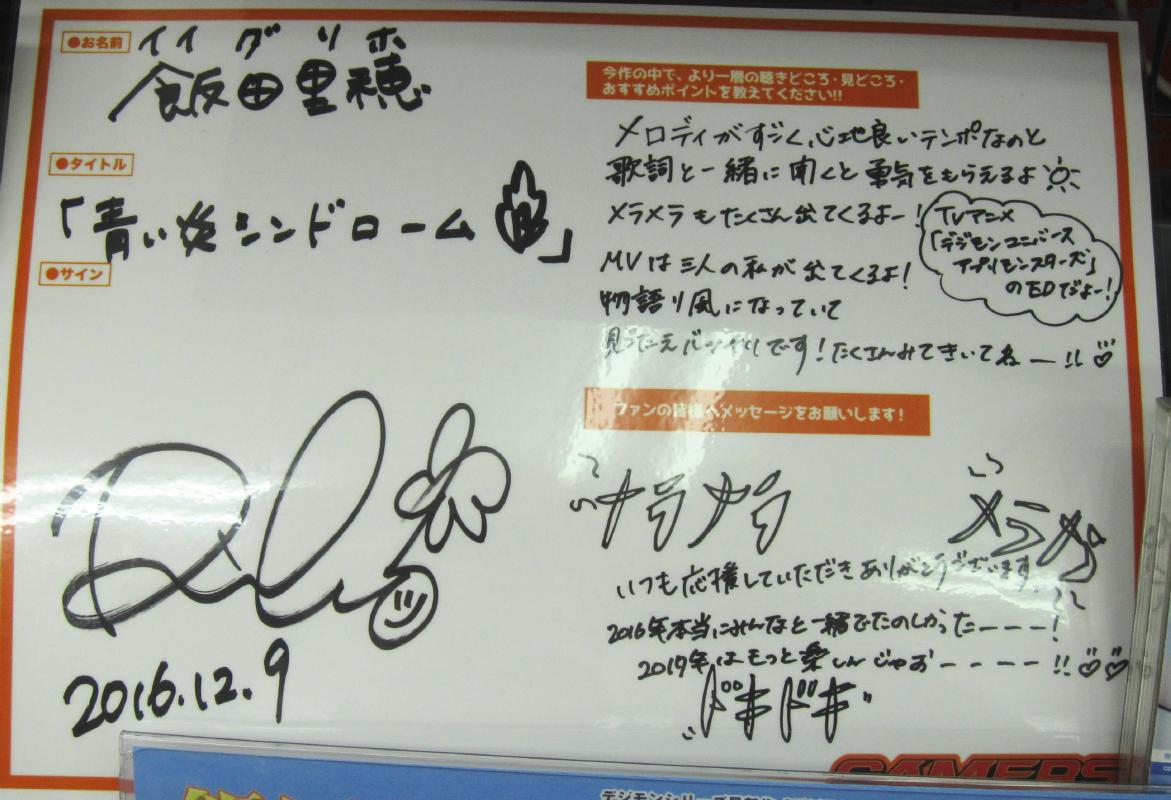 ●お名前
イイダリホ
飯田里穂
●タイトル
「青い炎シンドローム」
●サイン
2016.12.9
今作の中で、より一層の聴きどころ・見どころ・
おすすめポイントを教えてください!!
メロディがすごく心地良いテンポなのと
歌詞と一緒に聞くと勇気をもらえるよ
メラメラもたくさん出てくるよー!
TVアニメ
「デジモンユニバース
アプリモンスターズ」
のEDだよー!
MVは三人の私が出てくるよ!
物語り風になっていて
見ごたえバッチリです!たくさんみてきいてねー!!♡
ファンの皆様へメッセージをお願いします!
メラメラ
いつも応援していただきありがとうございます
2016年本当にみんなと一緒でたのしかったーーー!
2017年はもっと楽しんじゃおーーーー!!♡♡
ドキドキ
GAMERS